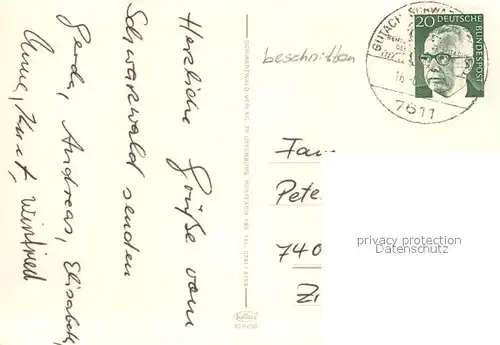 Herzliche Grüße vom
Schwarzwald senden
Gerda, Andreas, Elisabeth,
Kurt, Winfried
SCHWARZWALD VERLAG, 76 OFFENBURG, POSTFACH
beschnitten
GUTACH SCHWARZ
16
7611
20 DEUTSCHE
BUNDESPOST
Fam
Pete
740
privacy protection
Datenschutz